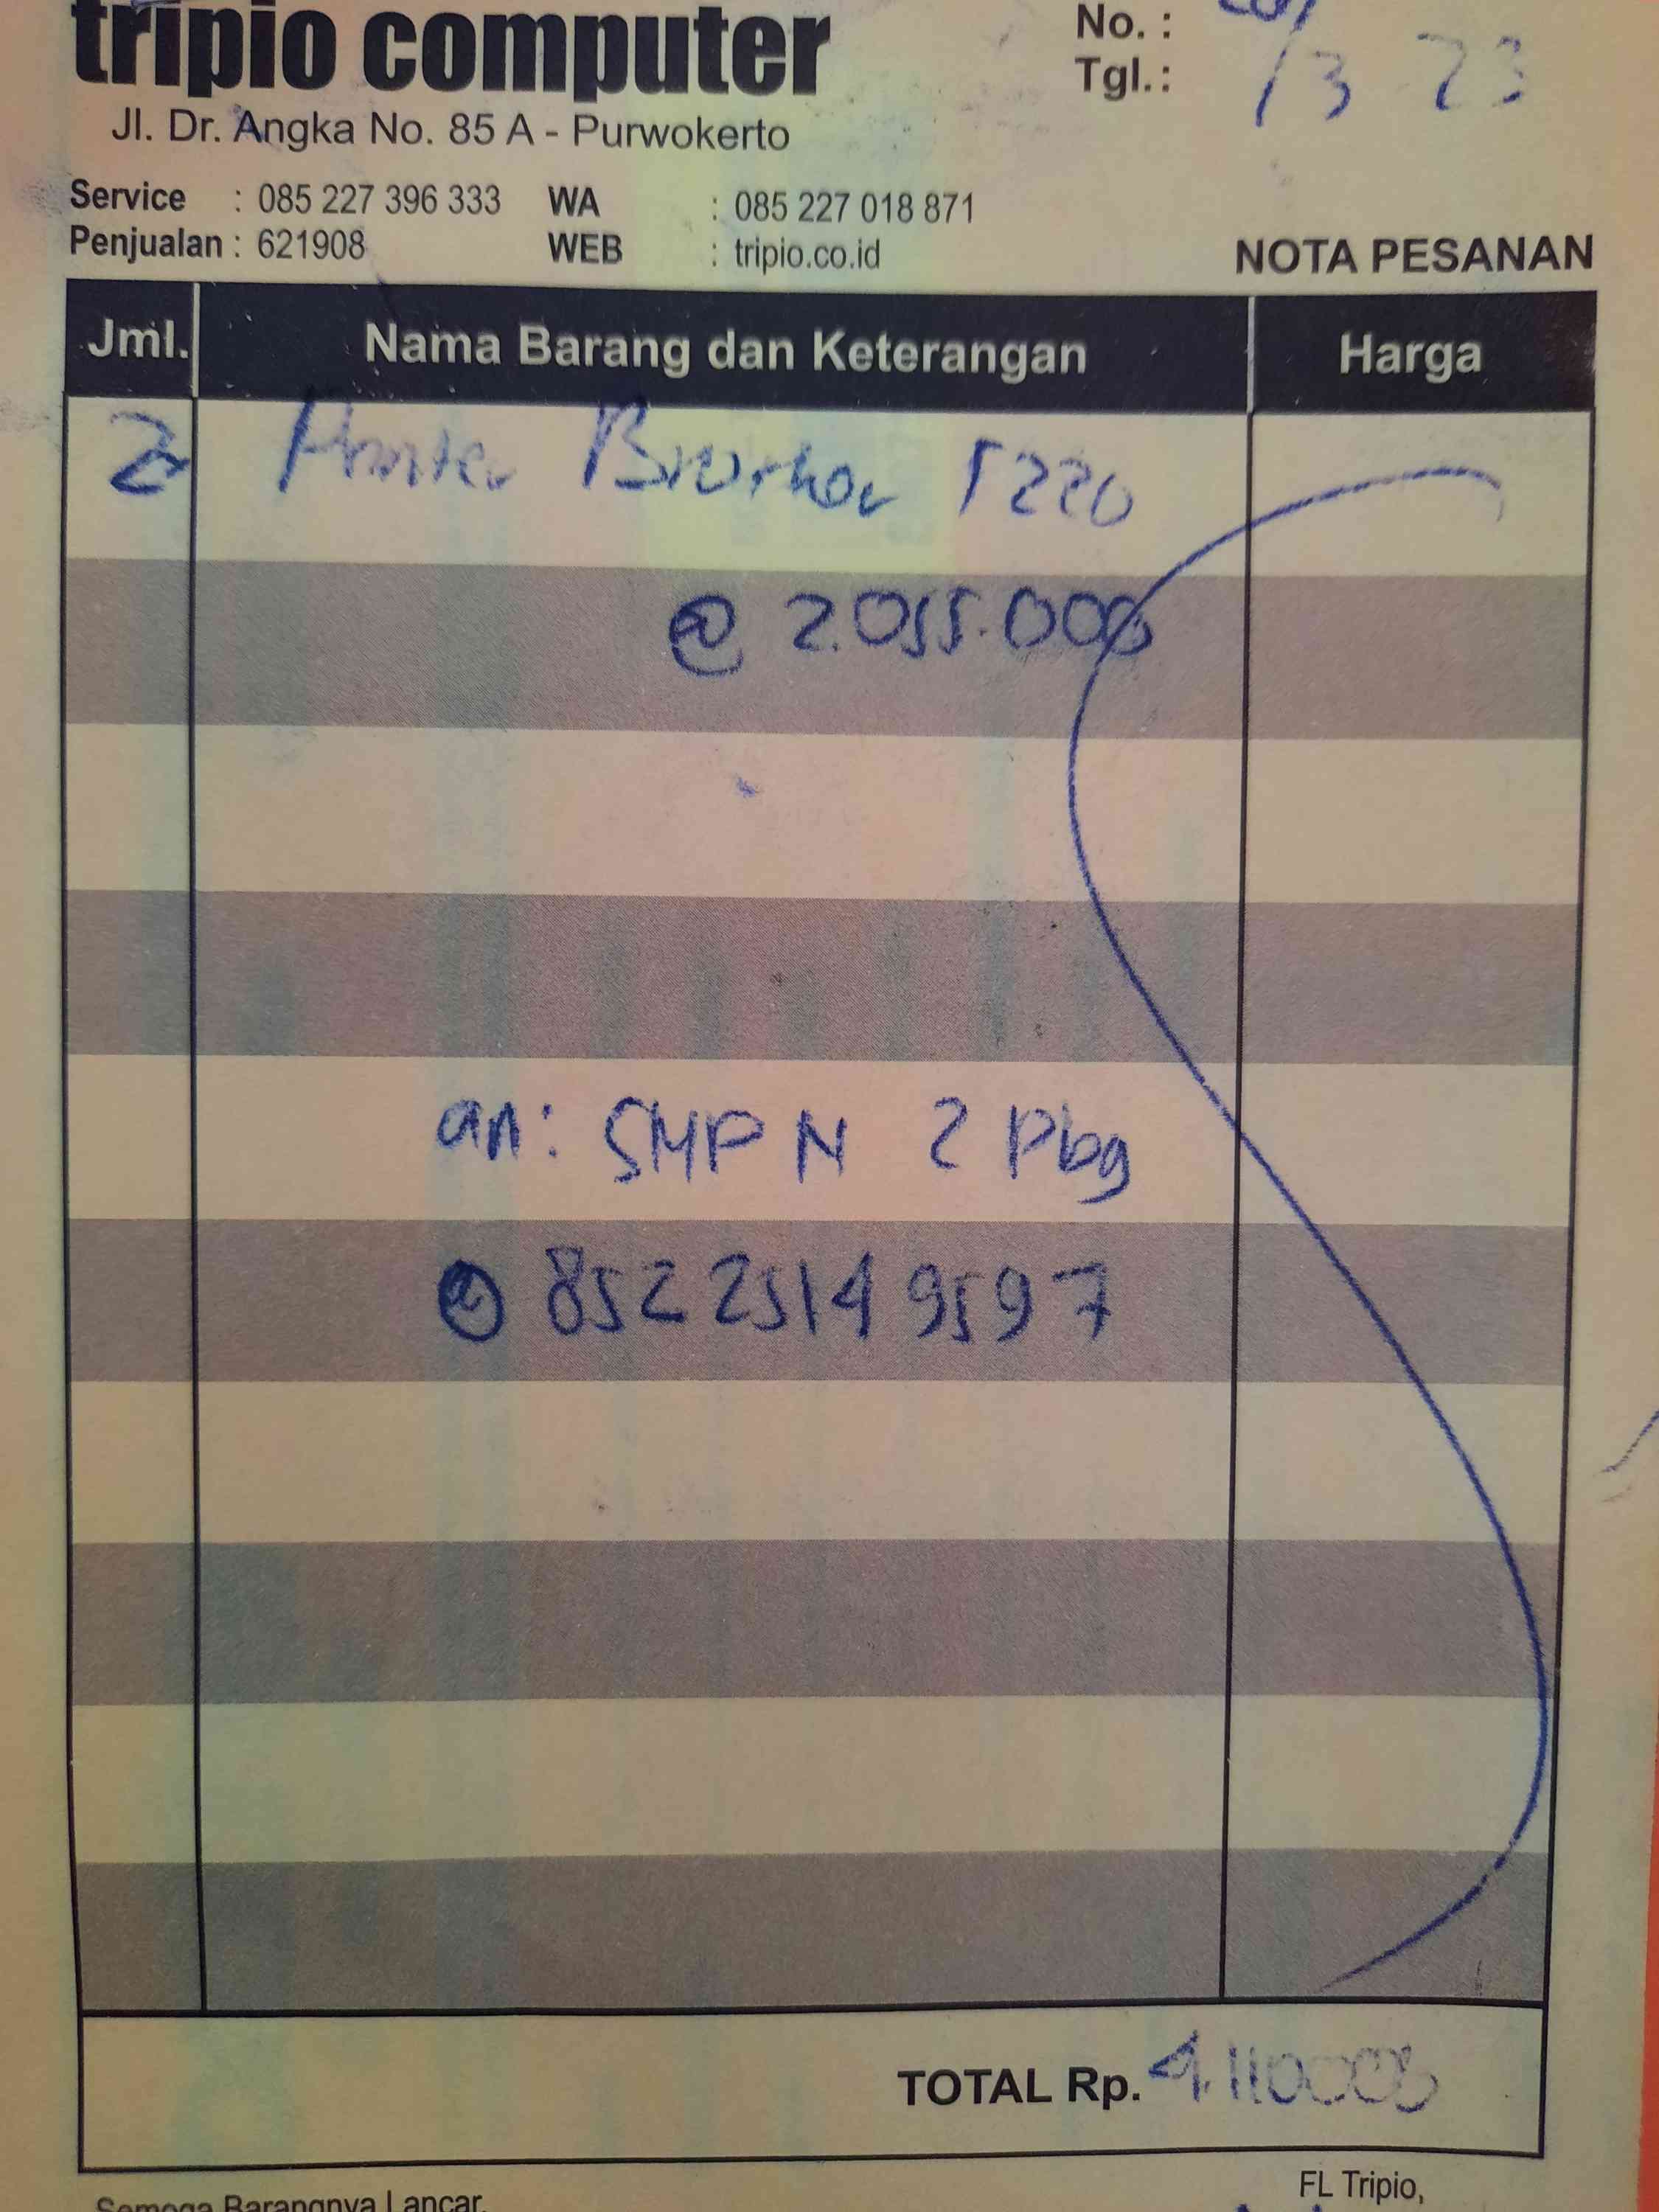 tripio computer
No. :
Tgl. : /3 23
Jl. Dr. Angka No. 85 A - Purwokerto
Service : 085 227 396 333 WA : 085 227 018 871
Penjualan : 621908 WEB : tripio.co.id
NOTA PESANAN
Jml. Nama Barang dan Keterangan Harga
2 Printer Brother T220
@ 2.055.000
an: SMP N 2 Pbg
0 852 2514 9597
TOTAL Rp. 4.110000
FL Tripio,
Semoga Barangnya Lancar,